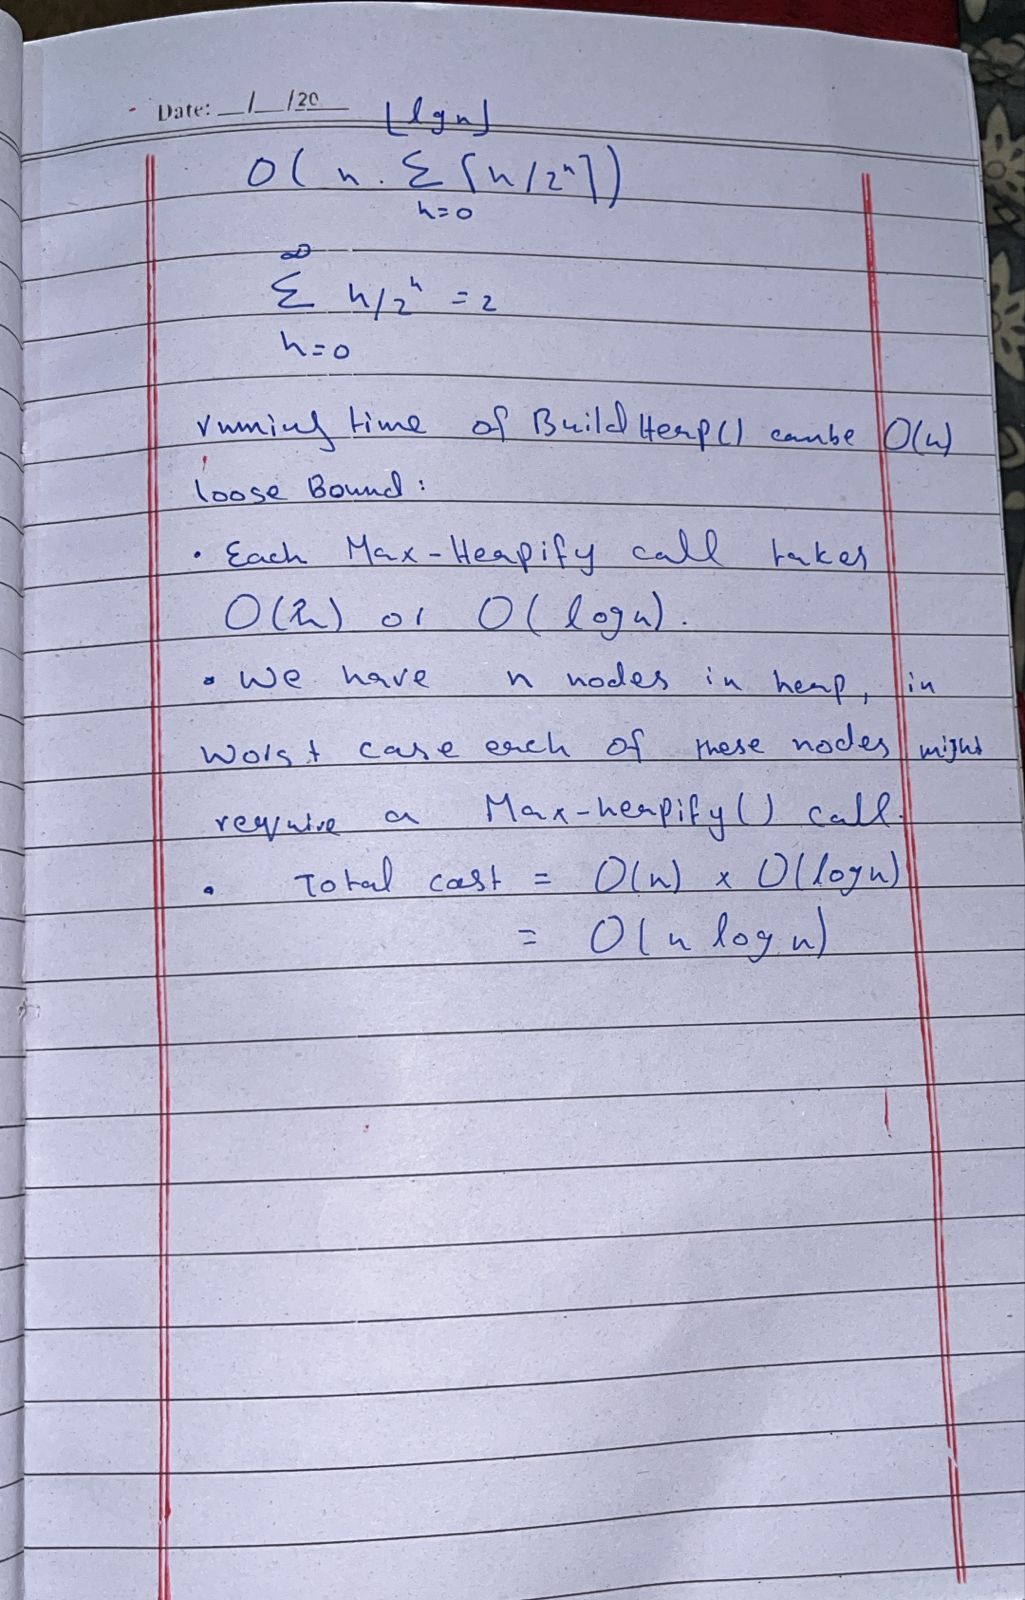 Date: __/__/20__
⌊lg n⌋
O( n. Σ ⌈h/2ʰ⌉)
h=0
∞
Σ h/2ʰ = 2
h=0
running time of BuildHeap() can be O(n)
loose Bound:
• Each Max-Heapify call takes
O(h) or O( log n).
• We have n nodes in heap, in
worst case each of these nodes might
require a Max-heapify() call.
• Total cost = O(n) x O(log n)
= O(n log n)